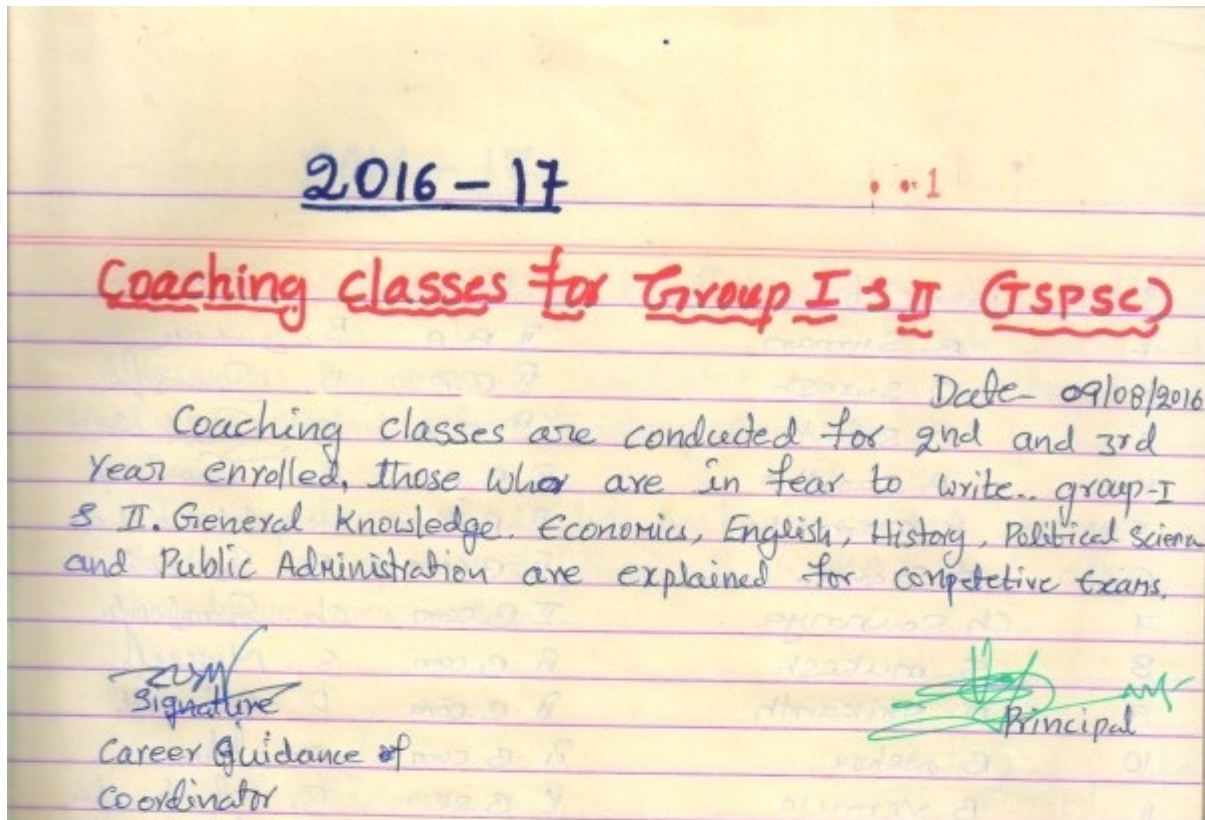 2016-17
1
Coaching classes for Group I & II (TSPSC)
Date- 09/08/2016
Coaching classes are conducted for 2nd and 3rd
Year enrolled, those who are in fear to write.. group-I
& II. General Knowledge. Economics, English, History, Political Science
and Public Administration are explained for competetive Exams.
Signature
Principal
Career Guidance of
Coordinator